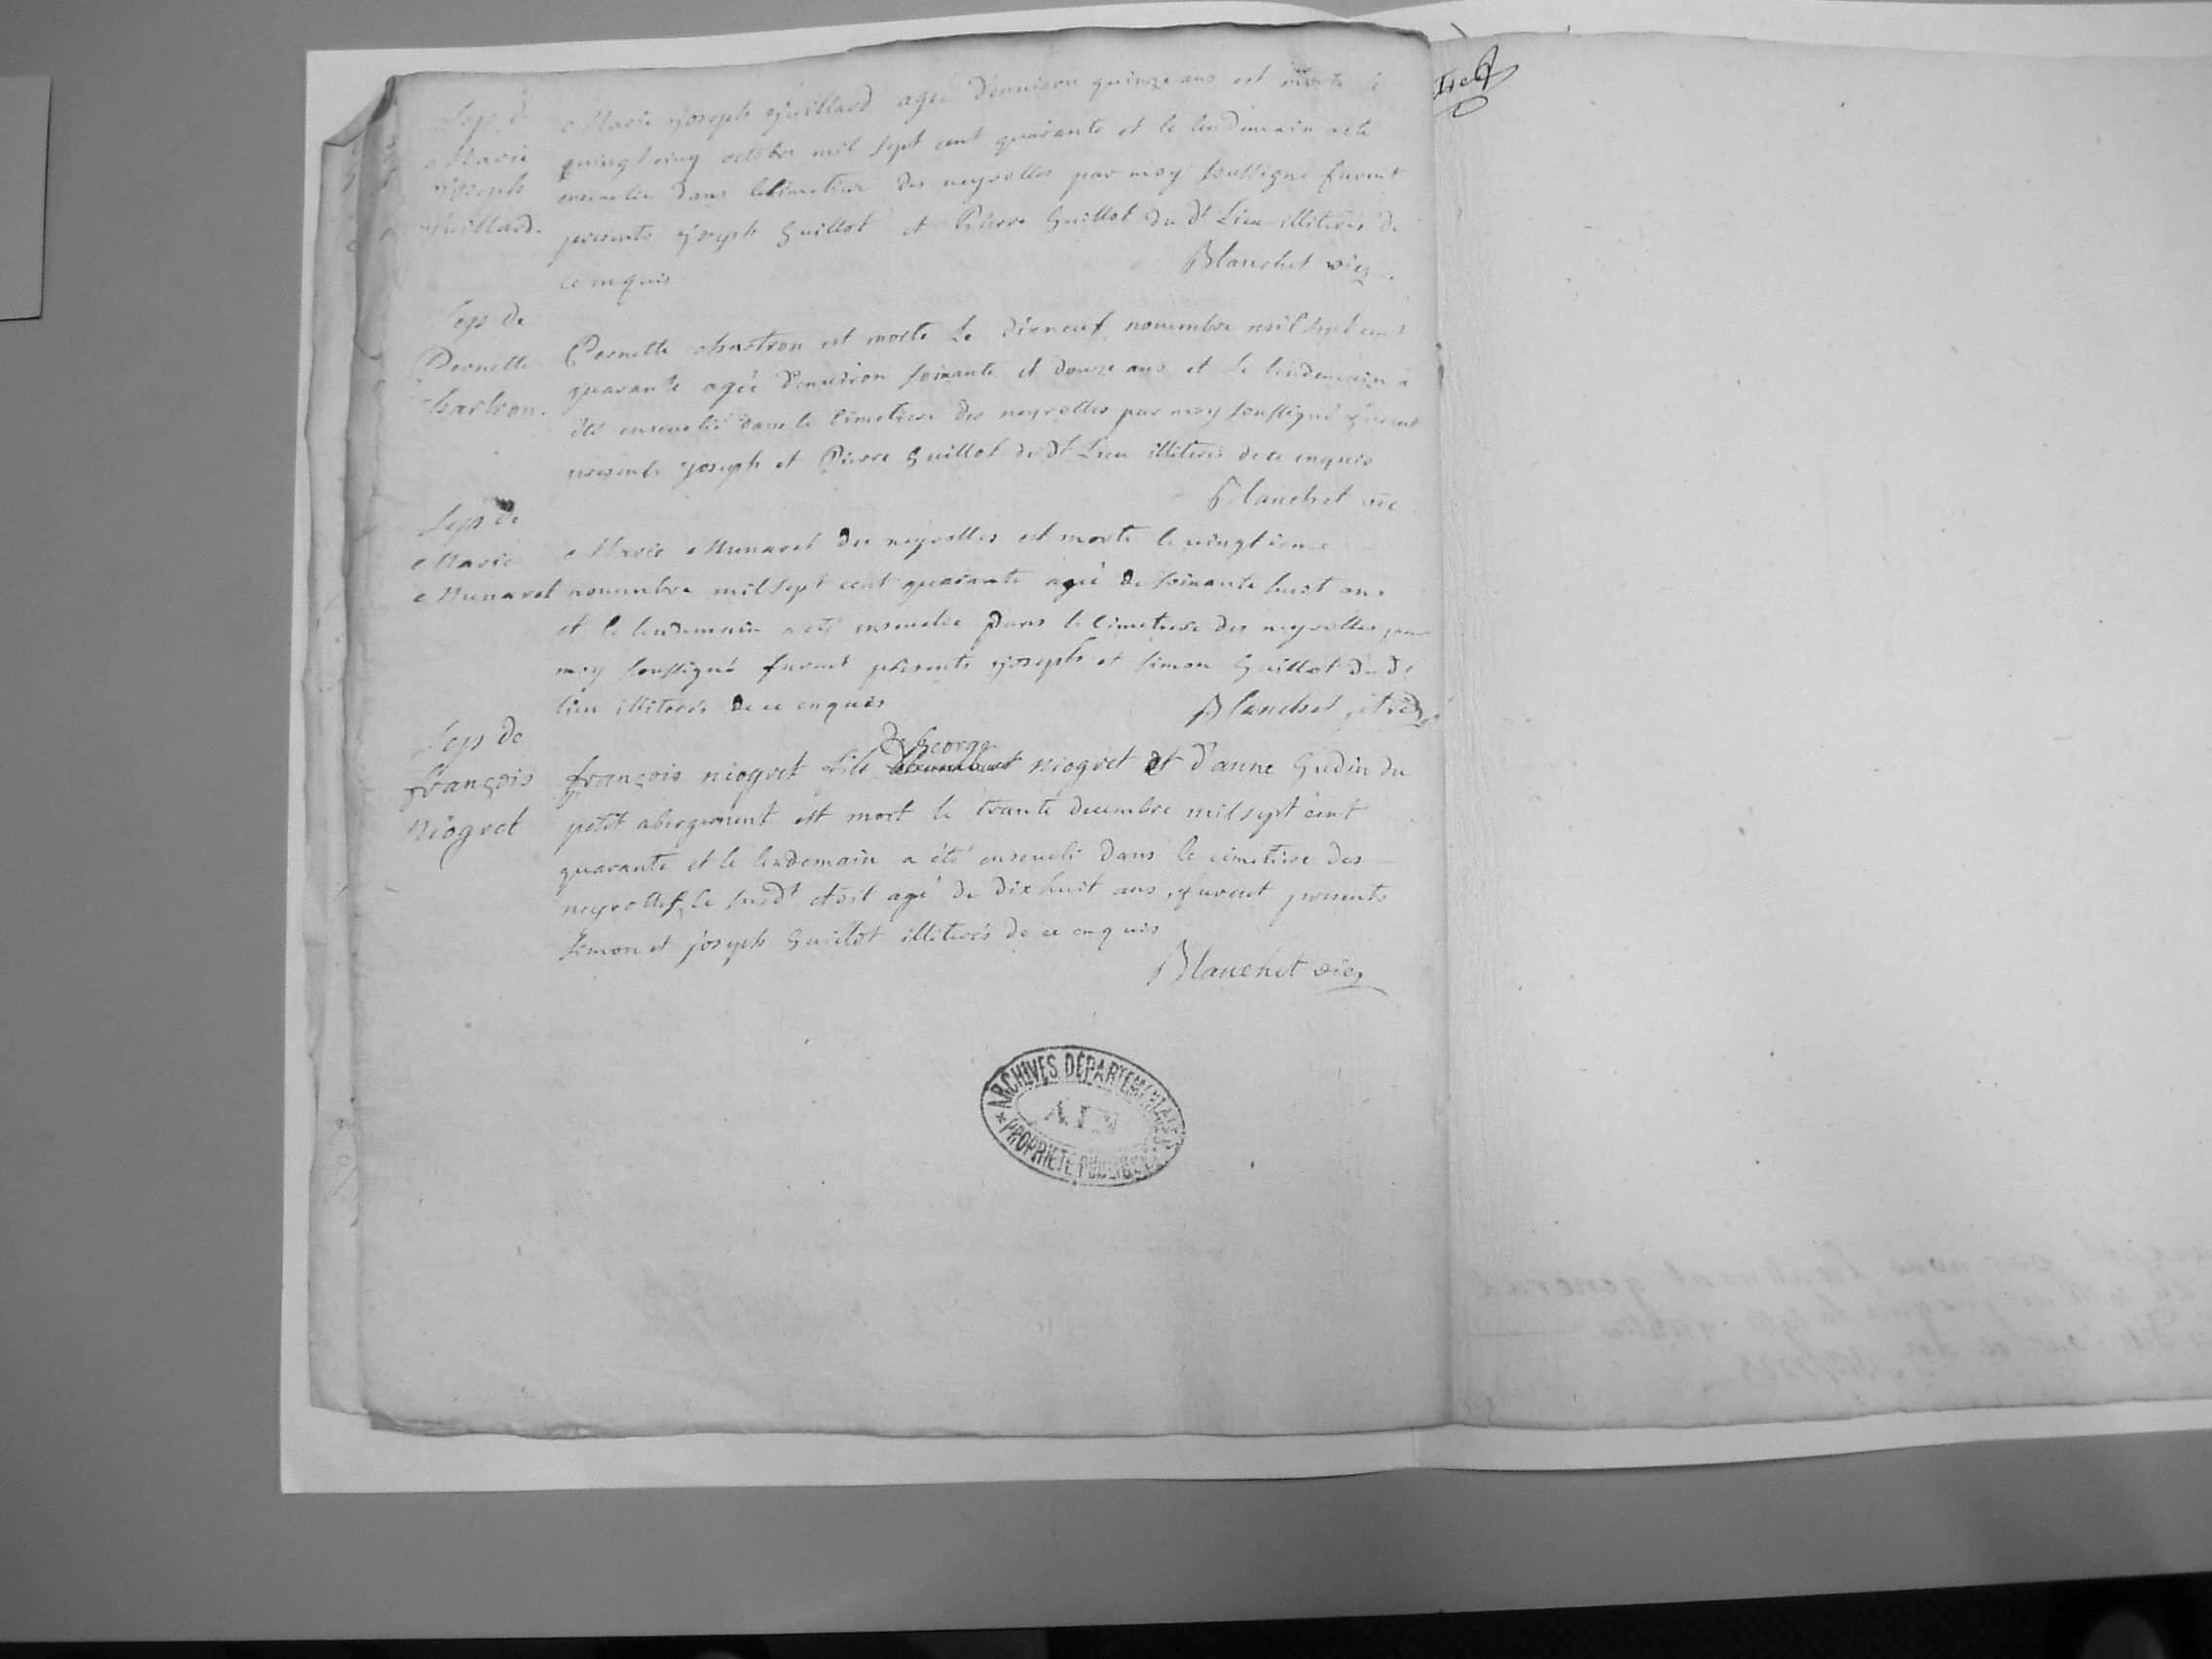 Sep. de
Marie
joseph
juillard.
Marie joseph juillard agée d'enuiron quinze ans est morte le
vingt cinq octobre mil sept cent quarante et le lendemain a eté
enseuelie dans le cimetiere des neyrolles par moy soussigné furent
presents joseph Guillot et Pierre Guillot du dt Lieu illiterés de
ce enquis
Blanchet vic.
Sep. de
Pernette
chartron.
Pernette chartron est morte Le dixneuf nouembre mil sept cent
quarante agée d'enuiron soixante et douze ans et Le lendemain a
été enseuelie dans le Cimetiere des neyrolles par moy soussigné furent
presents joseph et Pierre Guillot du dt Lieu illiterés de ce enquis
Blanchet vic
Sep. de
Marie
Munaret
Marie Munaret des neyrolles est morte le vingtieme
nouembre mil sept cent quarante agée de soixante huit ans
et le lendemain a eté enseuelie dans le Cimetiere des neyrolles par
moy soussigné furent présents joseph et simon Guillot du dt
lieu illiterés de ce enquis
Blanchet
Sep. de
françois
Niogret
de George
françois niogret fils niogret et d'anne Gudin du
petit abergement est mort le trante decembre mil sept cent
quarante et le lendemain a été enseueli dans le cimetiere des
neyrolles, le susdt etoit agé de dixhuit ans, furent presents
simon et joseph Guillot illiterés de ce enquis
Blanchet vic
ARCHIVES DÉPARTEMENTALES
AIN
PROPRIÉTÉ PUBLIQUE